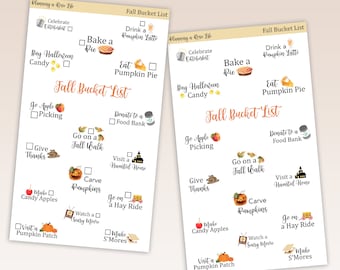 Planning a Rose Life
Fall Bucket List
Celebrate
Oktoberfest
Bake a
Pie
Drink a
Pumpkin Latte
Buy Halloween
Candy
Eat
Pumpkin Pie
Fall Bucket List
Go Apple
Picking
Donate to a
Food Bank
Go on a
Fall Walk
Give
Thanks
Visit a
Haunted House
Carve
Pumpkins
Make
Candy Apples
Go on
a Hay Ride
Watch a
Scary Movie
Visit a
Pumpkin Patch
Make
S'Mores
Planning a Rose Life
Fall Bucket List
Celebrate
Oktoberfest
Bake a
Pie
Drink a
Pumpkin Latte
Buy Halloween
Candy
Eat
Pumpkin Pie
Fall Bucket List
Go Apple
Picking
Donate to a
Food Bank
Go on a
Fall Walk
Give
Thanks
Visit a
Haunted House
Carve
Pumpkins
Make
Candy Apples
Go on
a Hay Ride
Watch a
Scary Movie
Visit a
Pumpkin Patch
Make
S'Mores